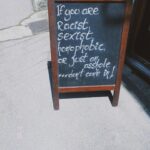 If you are
Racist,
sexist,
homophobic,
or just an
asshole...
don't come in!